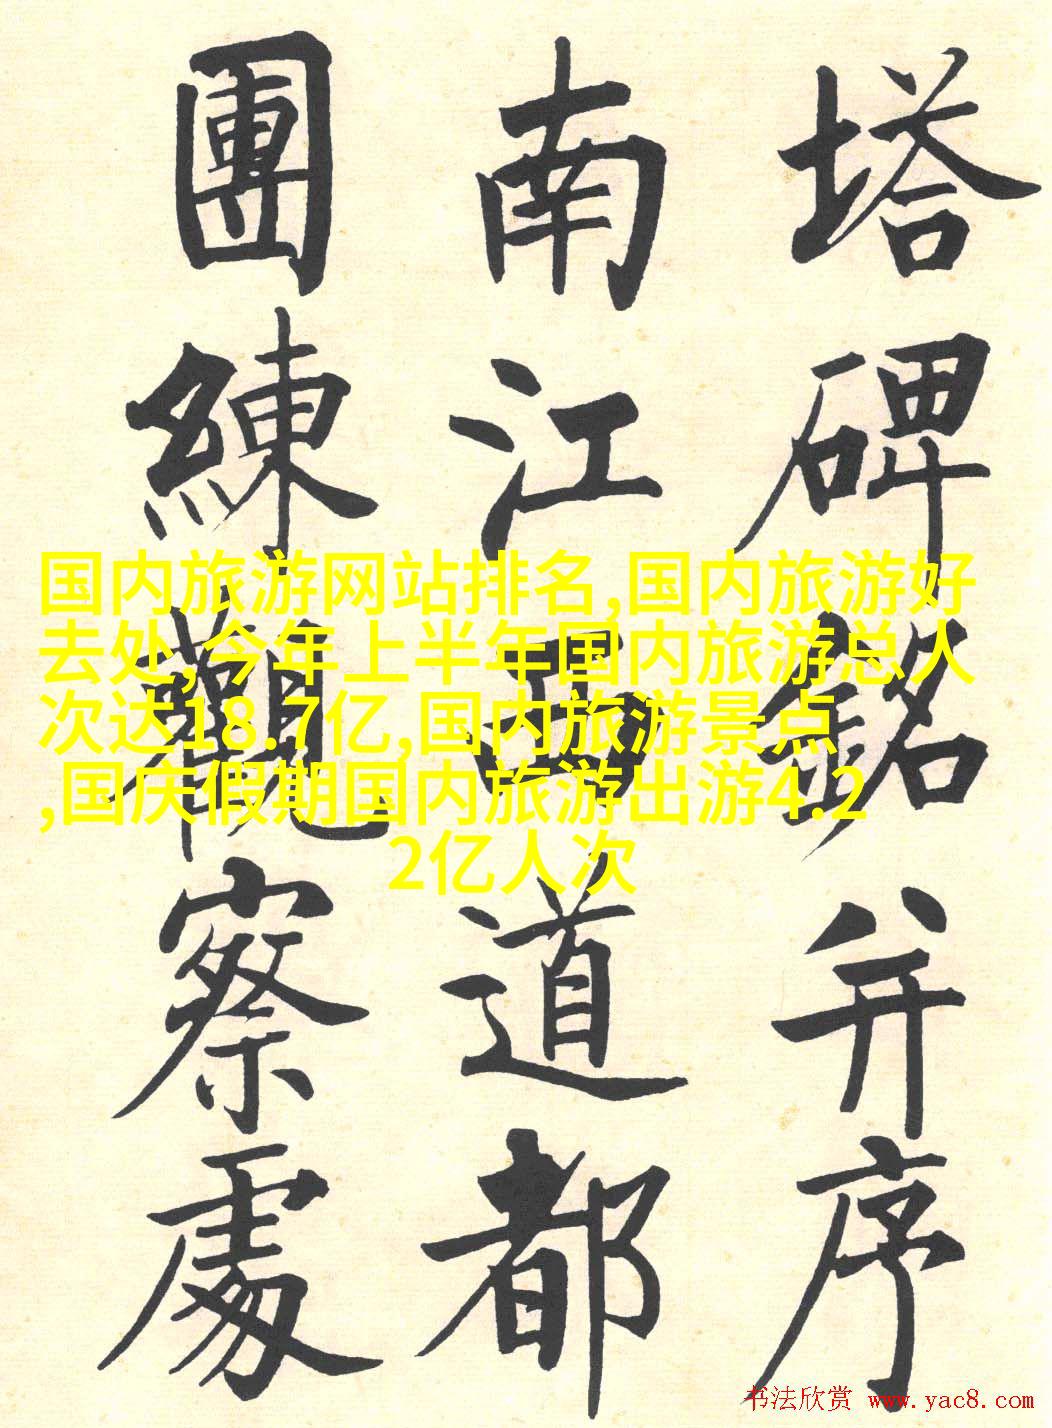 塔碑銘并序
南江西道都
團練觀察處
国内旅游网站排名,国内旅游好
去处,今年上半年国内旅游总人
次达18.7亿,国内旅游景点
,国庆假期国内旅游出游4.2
2亿人次
书法欣赏 www.yac8.com